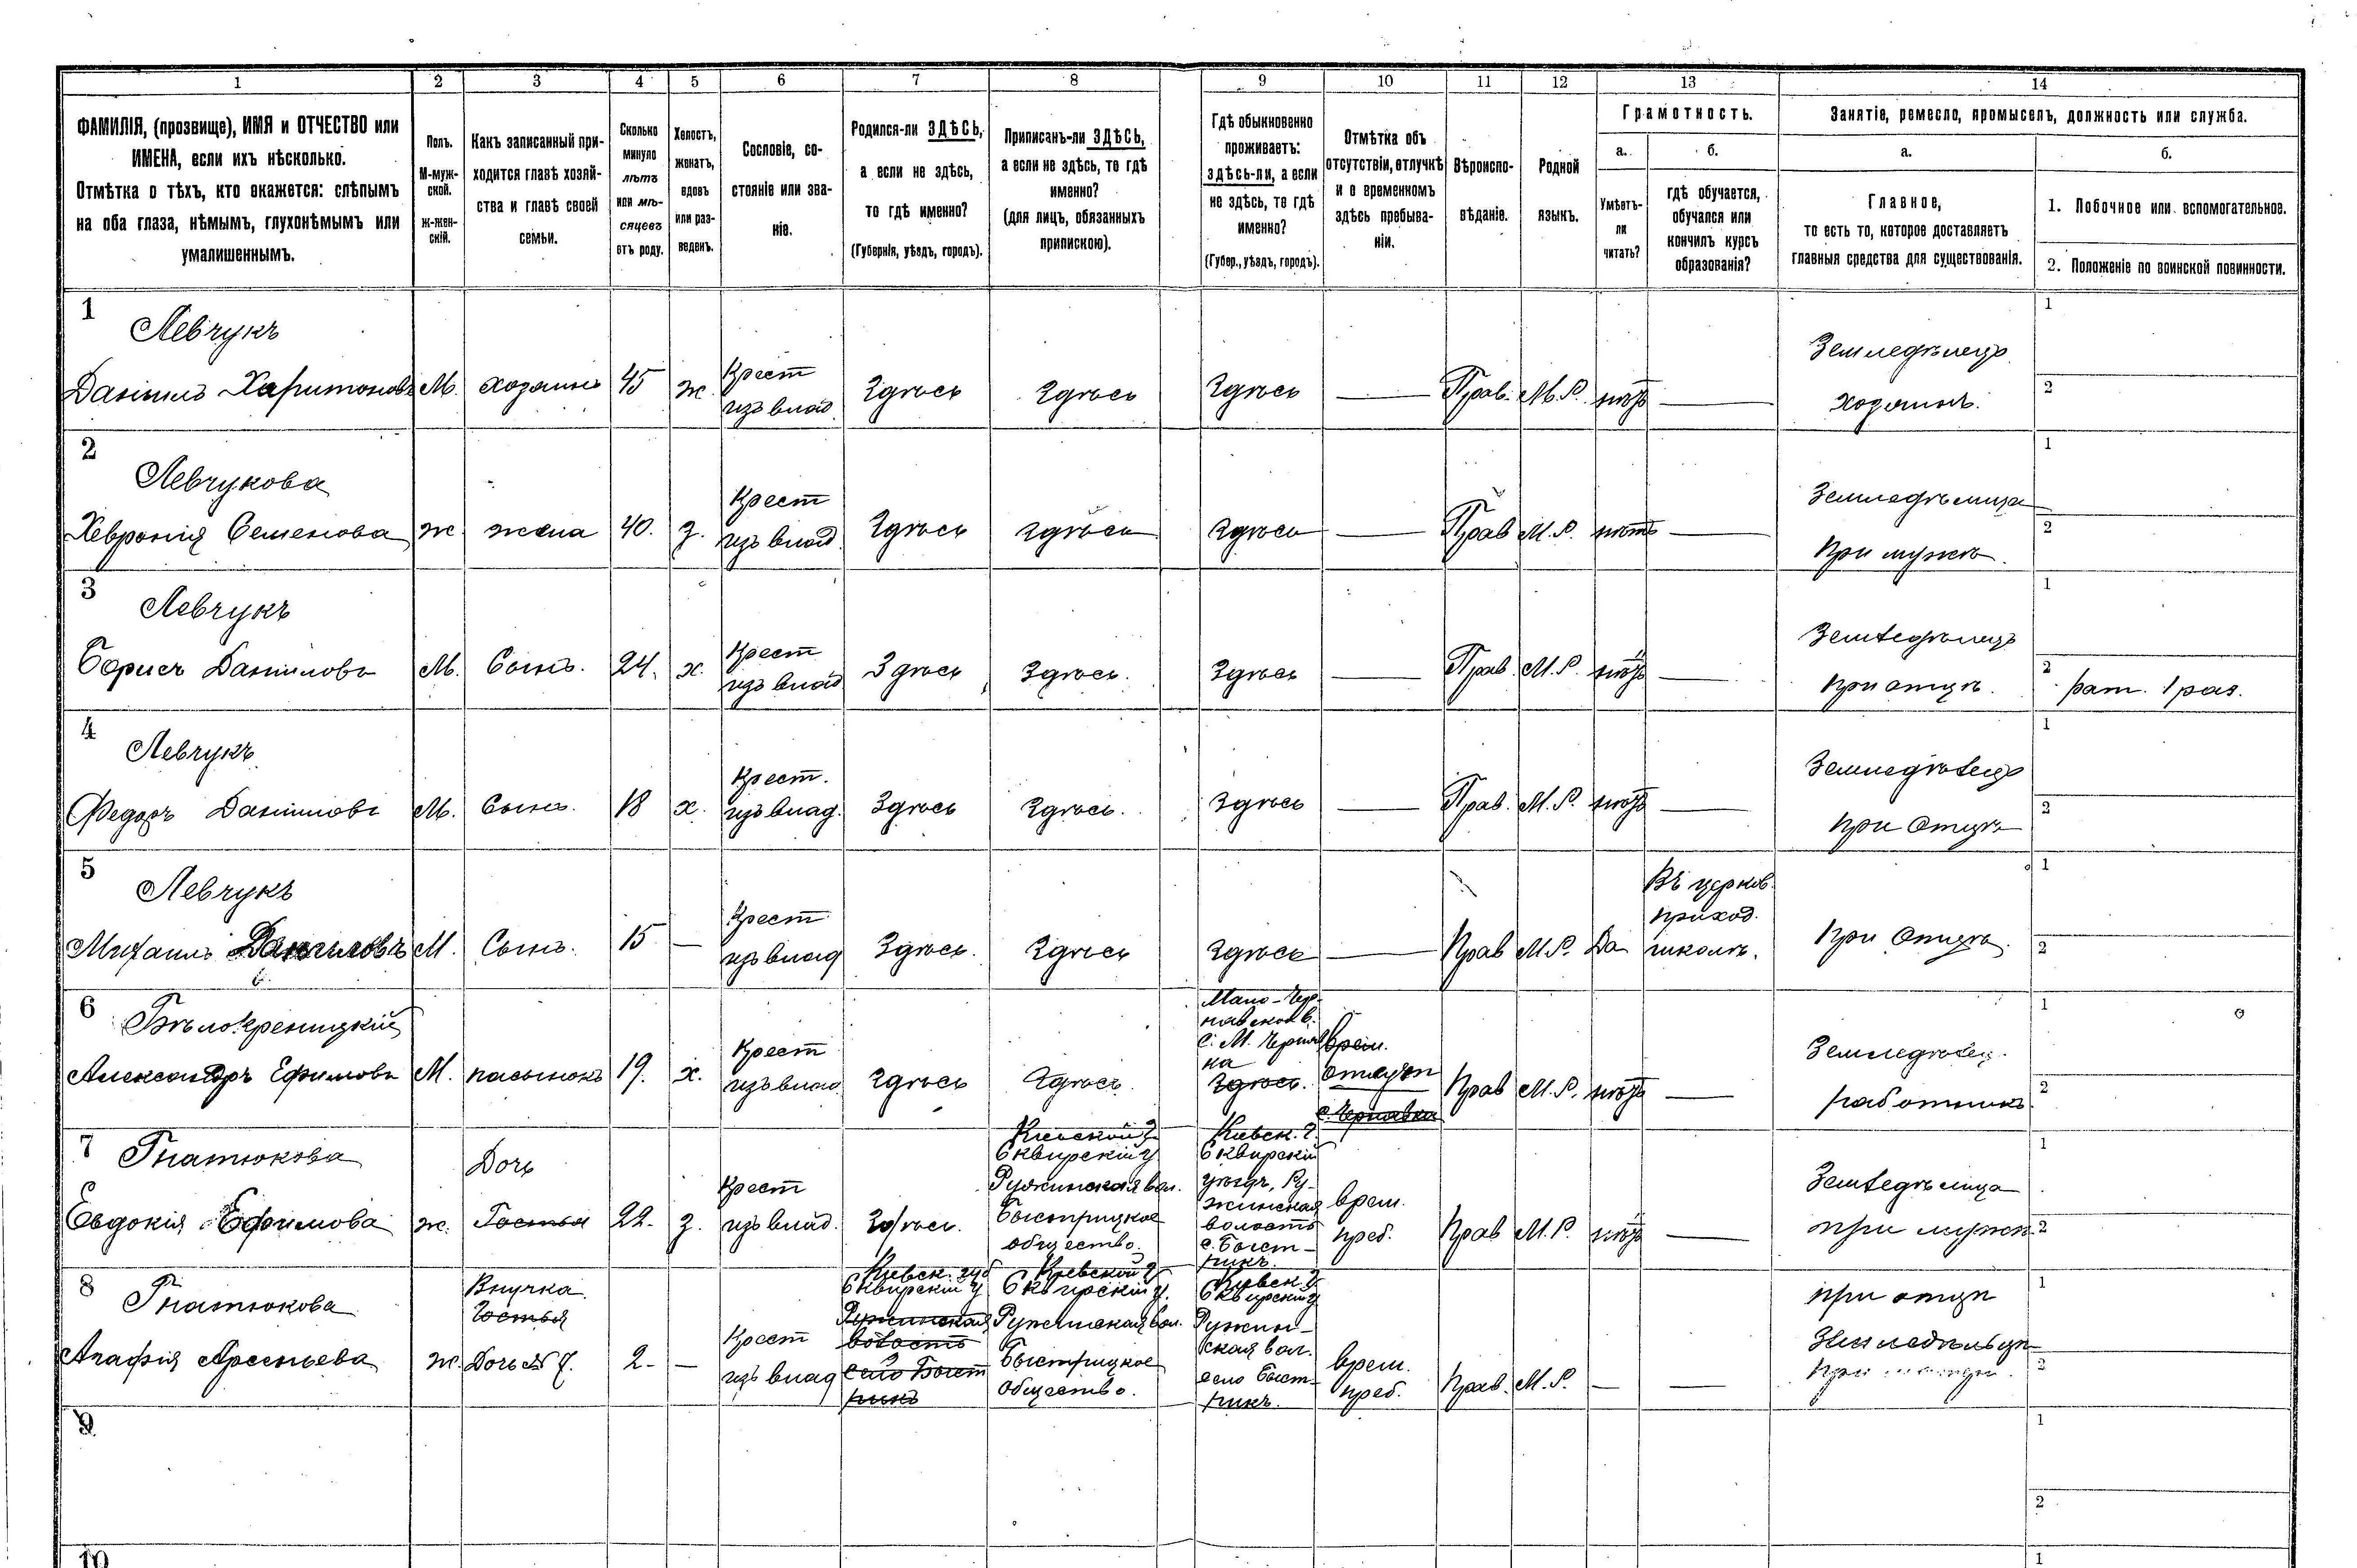 1 2 3 4 5 6 7 8 9 10 11 12 13 14
ФАМИЛІЯ, (прозвище), ИМЯ и ОТЧЕСТВО или
ИМЕНА, если ихъ нѣсколько.
Отмѣтка о тѣхъ, кто окажется: слѣпымъ
на оба глаза, нѣмымъ, глухонѣмымъ или
умалишеннымъ.
Полъ.
М-муж-
ской.
ж-жен-
скій.
Какъ записанный при-
ходится главѣ хозяй-
ства и главѣ своей
семьи.
Сколько
минуло
лѣтъ
или мѣ-
сяцевъ
отъ роду.
Холостъ,
женатъ,
вдовъ
или раз-
веденъ.
Сословіе, со-
стояніе или зва-
ніе.
Родился-ли ЗДѢСЬ,
а если не здѣсь,
то гдѣ именно?
(Губернія, уѣздъ, городъ).
Приписанъ-ли ЗДѢСЬ,
а если не здѣсь, то гдѣ
именно?
(для лицъ, обязанныхъ
припискою).
Гдѣ обыкновенно
проживаетъ:
здѣсь-ли, а если
не здѣсь, то гдѣ
именно?
(Губер., уѣздъ, городъ).
Отмѣтка объ
отсутствіи, отлучкѣ
и о временномъ
здѣсь пребыва-
ніи.
Вѣроиспо-
вѣданіе.
Родной
языкъ.
Грамотность.
а.
Умѣетъ-
ли
читать?
б.
гдѣ обучается,
обучался или
кончилъ курсъ
образованія?
Занятіе, ремесло, промыселъ, должность или служба.
а.
Главное,
то есть то, которое доставляетъ
главныя средства для существованія.
б.
1. Побочное или вспомогательное.
2. Положеніе по воинской повинности.
1
Левчукъ
Даніилъ Харитоновъ
М.
хозяинъ
45
ж.
Крест
изъ влад.
Здѣсь
Здѣсь
Здѣсь
Прав.
М.Р.
нѣтъ
Земледѣлецъ
хозяинъ.
1
2
2
Левчукова
Хевронія Семенова
ж
жена
40.
з.
Крест
изъ влад.
Здѣсь
здѣсь
здѣсь
Прав
М.Р.
нѣтъ
Земледѣлица
при мужѣ.
1
2
3
Левчукъ
Борисъ Даніиловъ
М.
Сынъ.
24.
х.
Крест
изъ влад
Здѣсь
Здѣсь.
Здѣсь
Прав.
М.Р.
нѣтъ
Земледѣлецъ
при отцѣ.
1
2
рат. 1 раз.
4
Левчукъ.
Федоръ Даніиловъ
М.
Сынъ.
18
х.
Крест.
изъ влад.
Здѣсь
Здѣсь.
Здѣсь
Прав.
М.Р.
нѣтъ
Земледѣлецъ
при Отцѣ
1
2
5
Левчукъ
Михаилъ Даниловъ
М.
Сынъ.
15
Крест
изъ влад
Здѣсь.
Здѣсь
Здѣсь
Прав
М.Р.
Да
Въ церков.
приход.
школѣ.
при Отцѣ.
1
2
6
Бѣлокреницкій
Александръ Ефимовъ
М.
пасынокъ
19.
х.
Крест
изъ влад.
Здѣсь
Здѣсь.
Мало-Чер-
навской в.
с. М. Чернав
ка
Здѣсь.
врем.
отлуч
с. Чернавка
Прав
М.Р.
нѣтъ
Земледѣлец.
работникъ.
1
2
7
Гнатюкова
Евдокія Ефимова
ж.
Дочь
Гостья
22.
з.
Крест
изъ влад.
Здѣсь.
Кіевской г.
Сквирскій у
Ружинская вол.
Быстрицкое
общество.
Кіевск. г.
Сквирскій
уѣздъ, Ру-
жинская
волость
с. Быст-
рикъ.
врем.
преб.
Прав
М.Р.
нѣтъ
Земледѣлица
при мужѣ
1
2
8
Гнатюкова
Агафія Арсеньева
ж.
Внучка.
Гостья
Дочь № 7.
2
Крест
изъ влад
Кіевск. губ
Сквирскій у
Ружинская
волость
село Быст
рикъ
Кіевской г
Сквирскій у.
Ружинская вол.
Быстрицкое
Общество.
Кіевск. г
Сквирскій у
Ружин-
ская вол.
село Быст-
рикъ.
врем.
преб.
Прав.
М.Р.
при отцѣ
Земледѣльцѣ
при
1
2
9
1
2
10
1